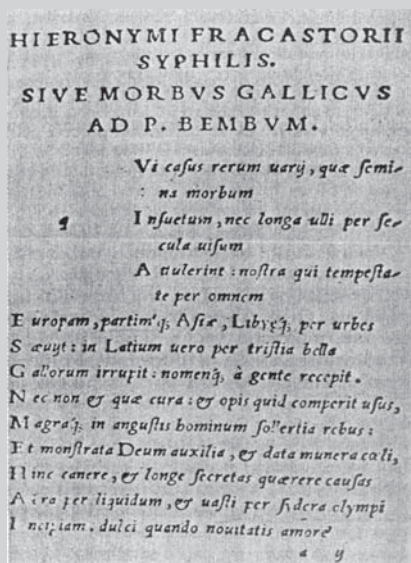 HIERONYMI FRACASTORII
SYPHILIS.
SIVE MORBVS GALLICVS
AD P. BEMBVM.
Vi casus rerum uarij, quæ semi-
na morbum
q Insuetum, nec longa ulli per se-
cula uisum
Attulerint: nostra qui tempesta-
te per omnem
Europam, partimq́; Asiæ, Libyęq́; per urbes
Sæuijt: in Latium uero per tristia bella
Gallorum irrupit: nomenq́; à gente recepit.
Nec non & quæ cura: & opis quid comperit usus,
Magnaq́; in angustis hominum sollertia rebus:
Et monstrata Deum auxilia, & data munera cæli,
Hinc canere, & longe secretas quærere causas
Aera per liquidum, & uasti per sydera olympi
Incipiam. dulci quando nouitatis amore
a ij